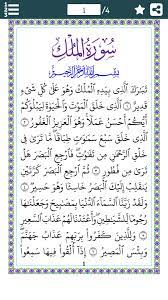 1 /4
سُورَةُ الْمُلْكِ
بِسْمِ اللَّهِ الرَّحْمَٰنِ الرَّحِيمِ
تَبَٰرَكَ الَّذِي بِيَدِهِ الْمُلْكُ وَهُوَ عَلَىٰ كُلِّ شَيْءٍ
قَدِيرٌ ١ الَّذِي خَلَقَ الْمَوْتَ وَالْحَيَوٰةَ لِيَبْلُوَكُمْ
أَيُّكُمْ أَحْسَنُ عَمَلًا وَهُوَ الْعَزِيزُ الْغَفُورُ ٢
الَّذِي خَلَقَ سَبْعَ سَمَٰوَٰتٍ طِبَاقًا مَّا تَرَىٰ فِي
خَلْقِ الرَّحْمَٰنِ مِن تَفَٰوُتٍ فَارْجِعِ الْبَصَرَ هَلْ
تَرَىٰ مِن فُطُورٍ ٣ ثُمَّ ارْجِعِ الْبَصَرَ كَرَّتَيْنِ
يَنقَلِبْ إِلَيْكَ الْبَصَرُ خَاسِئًا وَهُوَ حَسِيرٌ ٤
وَلَقَدْ زَيَّنَّا السَّمَاءَ الدُّنْيَا بِمَصَٰبِيحَ
وَجَعَلْنَٰهَا رُجُومًا لِّلشَّيَٰطِينِ وَأَعْتَدْنَا لَهُمْ عَذَابَ السَّعِيرِ
٥ وَلِلَّذِينَ كَفَرُوا بِرَبِّهِمْ عَذَابُ جَهَنَّمَ
وَبِئْسَ الْمَصِيرُ ٦ إِذَا أُلْقُوا فِيهَا سَمِعُوا لَهَا